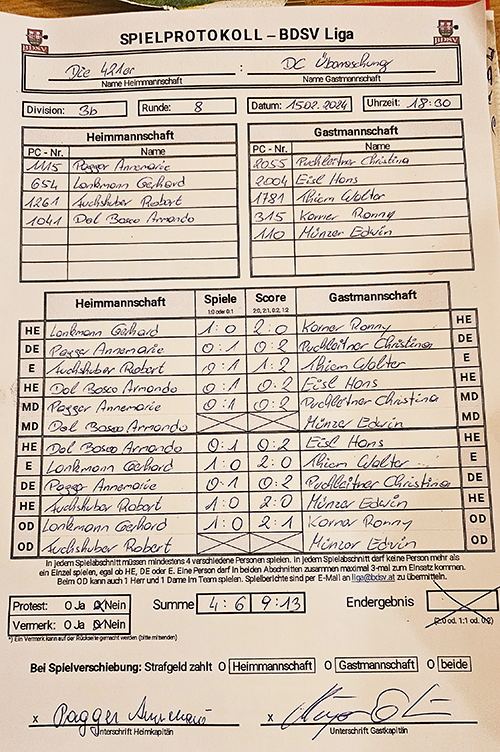 BDSV
SPIELPROTOKOLL – BDSV Liga
BDSV
Die 421er : DC Überraschung
Name Heimmannschaft Name Gastmannschaft
Division: 3b Runde: 8 Datum: 15.02.2024 Uhrzeit: 18:30
Heimmannschaft Gastmannschaft
PC - Nr. Name PC - Nr. Name
1115 Pagger Annemarie 2055 Puchleitner Christina
654 Lonkmann Gerhard 2004 Eisl Hans
1261 Fuchshuber Robert 1781 Thiem Walter
1041 Dal Bosco Armando 315 Korner Ronny
110 Münzer Edwin
Heimmannschaft Spiele Score Gastmannschaft
1:0 oder 0:1 2:0, 2:1, 0:2, 1:2
HE Lonkmann Gerhard 1:0 2:0 Korner Ronny HE
DE Pagger Annemarie 0:1 0:2 Puchleitner Christina DE
E Fuchshuber Robert 0:1 1:2 Thiem Walter E
HE Dal Bosco Armando 0:1 0:2 Eisl Hans HE
MD Pagger Annemarie 0:1 0:2 Puchleitner Christina MD
MD Dal Bosco Armando Münzer Edwin MD
HE Dal Bosco Armando 0:1 0:2 Eisl Hans HE
E Lonkmann Gerhard 1:0 2:0 Thiem Walter E
DE Pagger Annemarie 0:1 0:2 Puchleitner Christina DE
HE Fuchshuber Robert 1:0 2:0 Münzer Edwin HE
OD Lonkmann Gerhard 1:0 2:1 Korner Ronny OD
OD Fuchshuber Robert Münzer Edwin OD
In jedem Spielabschnitt müssen mindestens 4 verschiedene Personen spielen. In jedem Spielabschnitt darf keine Person mehr als
ein Einzel spielen, egal ob HE, DE oder E. Eine Person darf in beiden Abschnitten zusammen maximal 3-mal zum Einsatz kommen.
Beim OD kann auch 1 Herr und 1 Dame im Team spielen. Spielberichte sind per E-Mail an liga@bdsv.at zu übermitteln.
Protest: O Ja O Nein Summe 4:6 9:13 Endergebnis
Vermerk: O Ja O Nein (2:0 od. 1:1 od. 0:2)
*) Ein Vermerk kann auf der Rückseite gemacht werden (bitte mitsenden)
Bei Spielverschiebung: Strafgeld zahlt O Heimmannschaft O Gastmannschaft O beide
x Pagger Annemarie x
Unterschrift Heimkapitän Unterschrift Gastkapitän